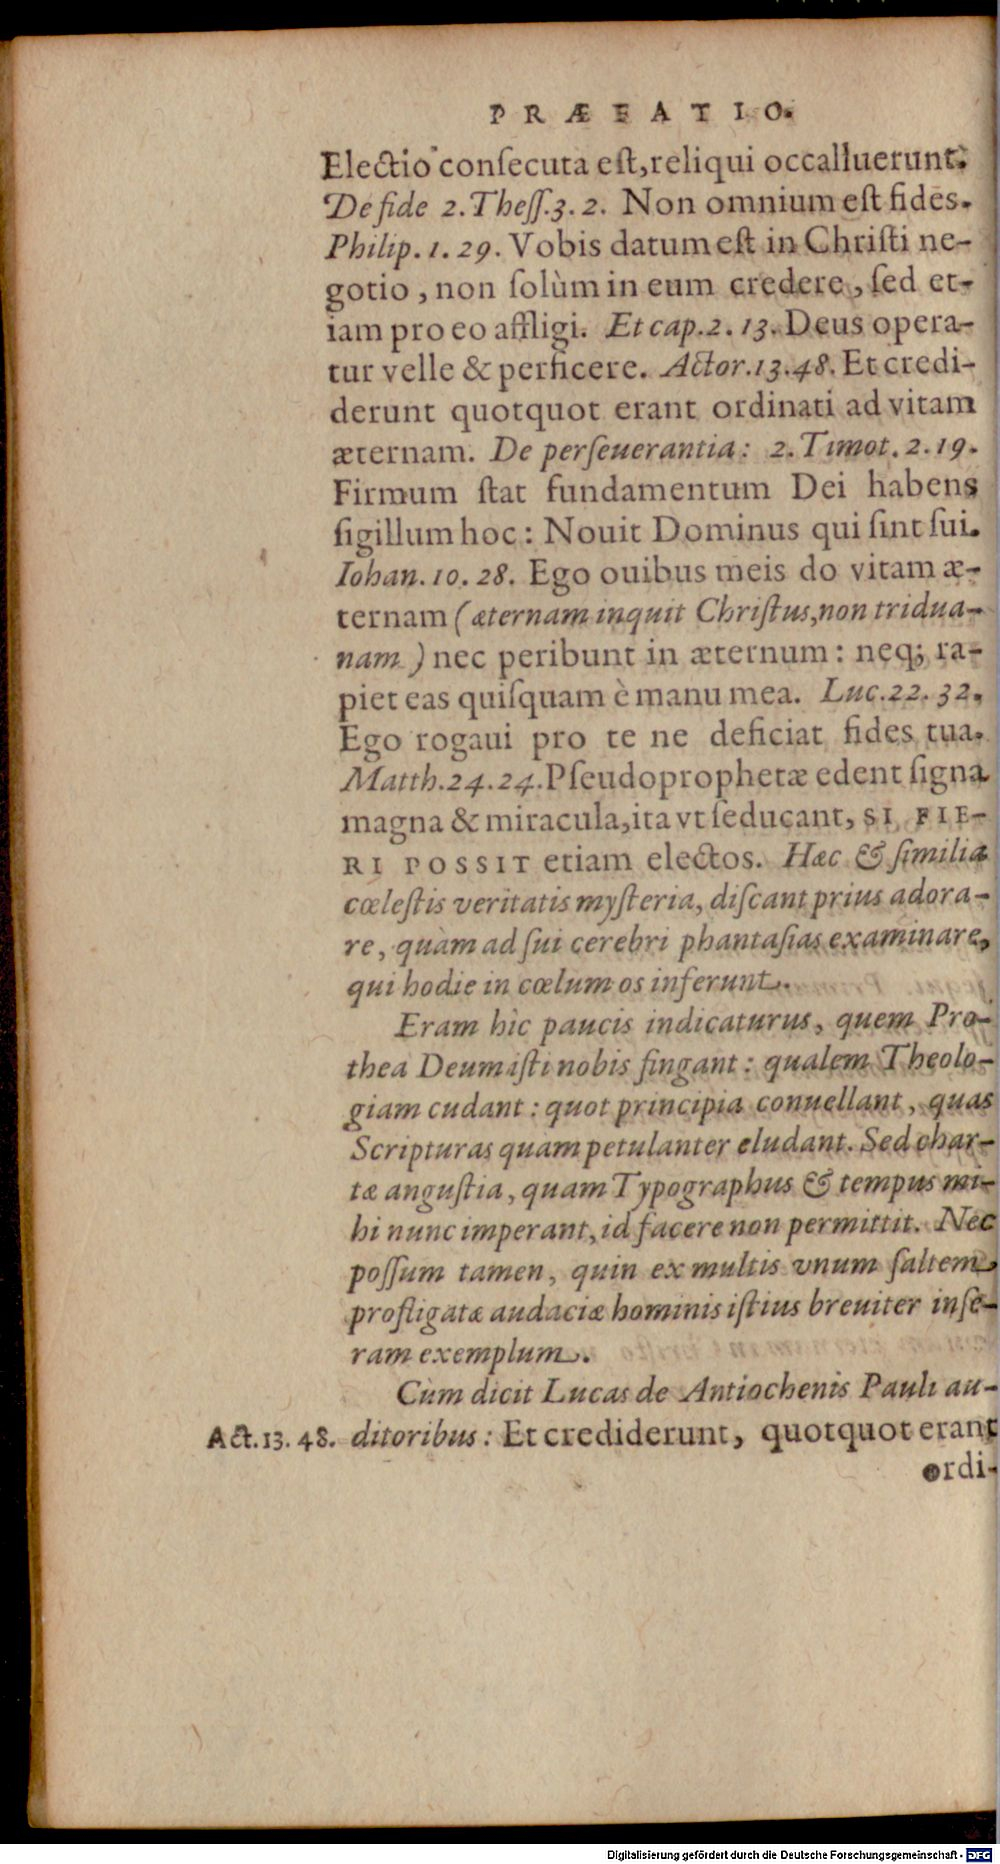 PRÆFATIO.
Electio consecuta est, reliqui occalluerunt.
De fide 2. Thess. 3. 2. Non omnium est fides.
Philip. 1. 29. Vobis datum est in Christi ne-
gotio, non solùm in eum credere, sed et-
iam pro eo affligi. Et cap. 2. 13. Deus opera-
tur velle & perficere. Actor. 13. 48. Et credi-
derunt quotquot erant ordinati ad vitam
æternam. De perseuerantia: 2. Timot. 2. 19.
Firmum stat fundamentum Dei habens
sigillum hoc: Nouit Dominus qui sint sui.
Iohan. 10. 28. Ego ouibus meis do vitam æ-
ternam (æternam inquit Christus, non tridua-
nam) nec peribunt in æternum: neq; ra-
piet eas quisquam è manu mea. Luc. 22. 32.
Ego rogaui pro te ne deficiat fides tua.
Matth. 24. 24. Pseudoprophetæ edent signa
magna & miracula, ita vt seducant, SI FIE-
RI POSSIT etiam electos. Hæc & similia
cœlestis veritatis mysteria, discant prius adora-
re, quàm ad sui cerebri phantasias examinare,
qui hodie in cœlum os inferunt.
Eram hìc paucis indicaturus, quem Pro-
thea Deum isti nobis fingant: qualem Theolo-
giam cudant: quot principia conuellant, quas
Scripturas quam petulanter eludant. Sed char-
tæ angustia, quam Typographus & tempus mi-
hi nunc imperant, id facere non permittit. Nec
possum tamen, quin ex multis vnum saltem
profligatæ audaciæ hominis istius breuiter inse-
ram exemplum.
Cùm dicit Lucas de Antiochenis Pauli au-
Act. 13. 48. ditoribus: Et crediderunt, quotquot erant
ordi-
Digitalisierung gefördert durch die Deutsche Forschungsgemeinschaft - DFG